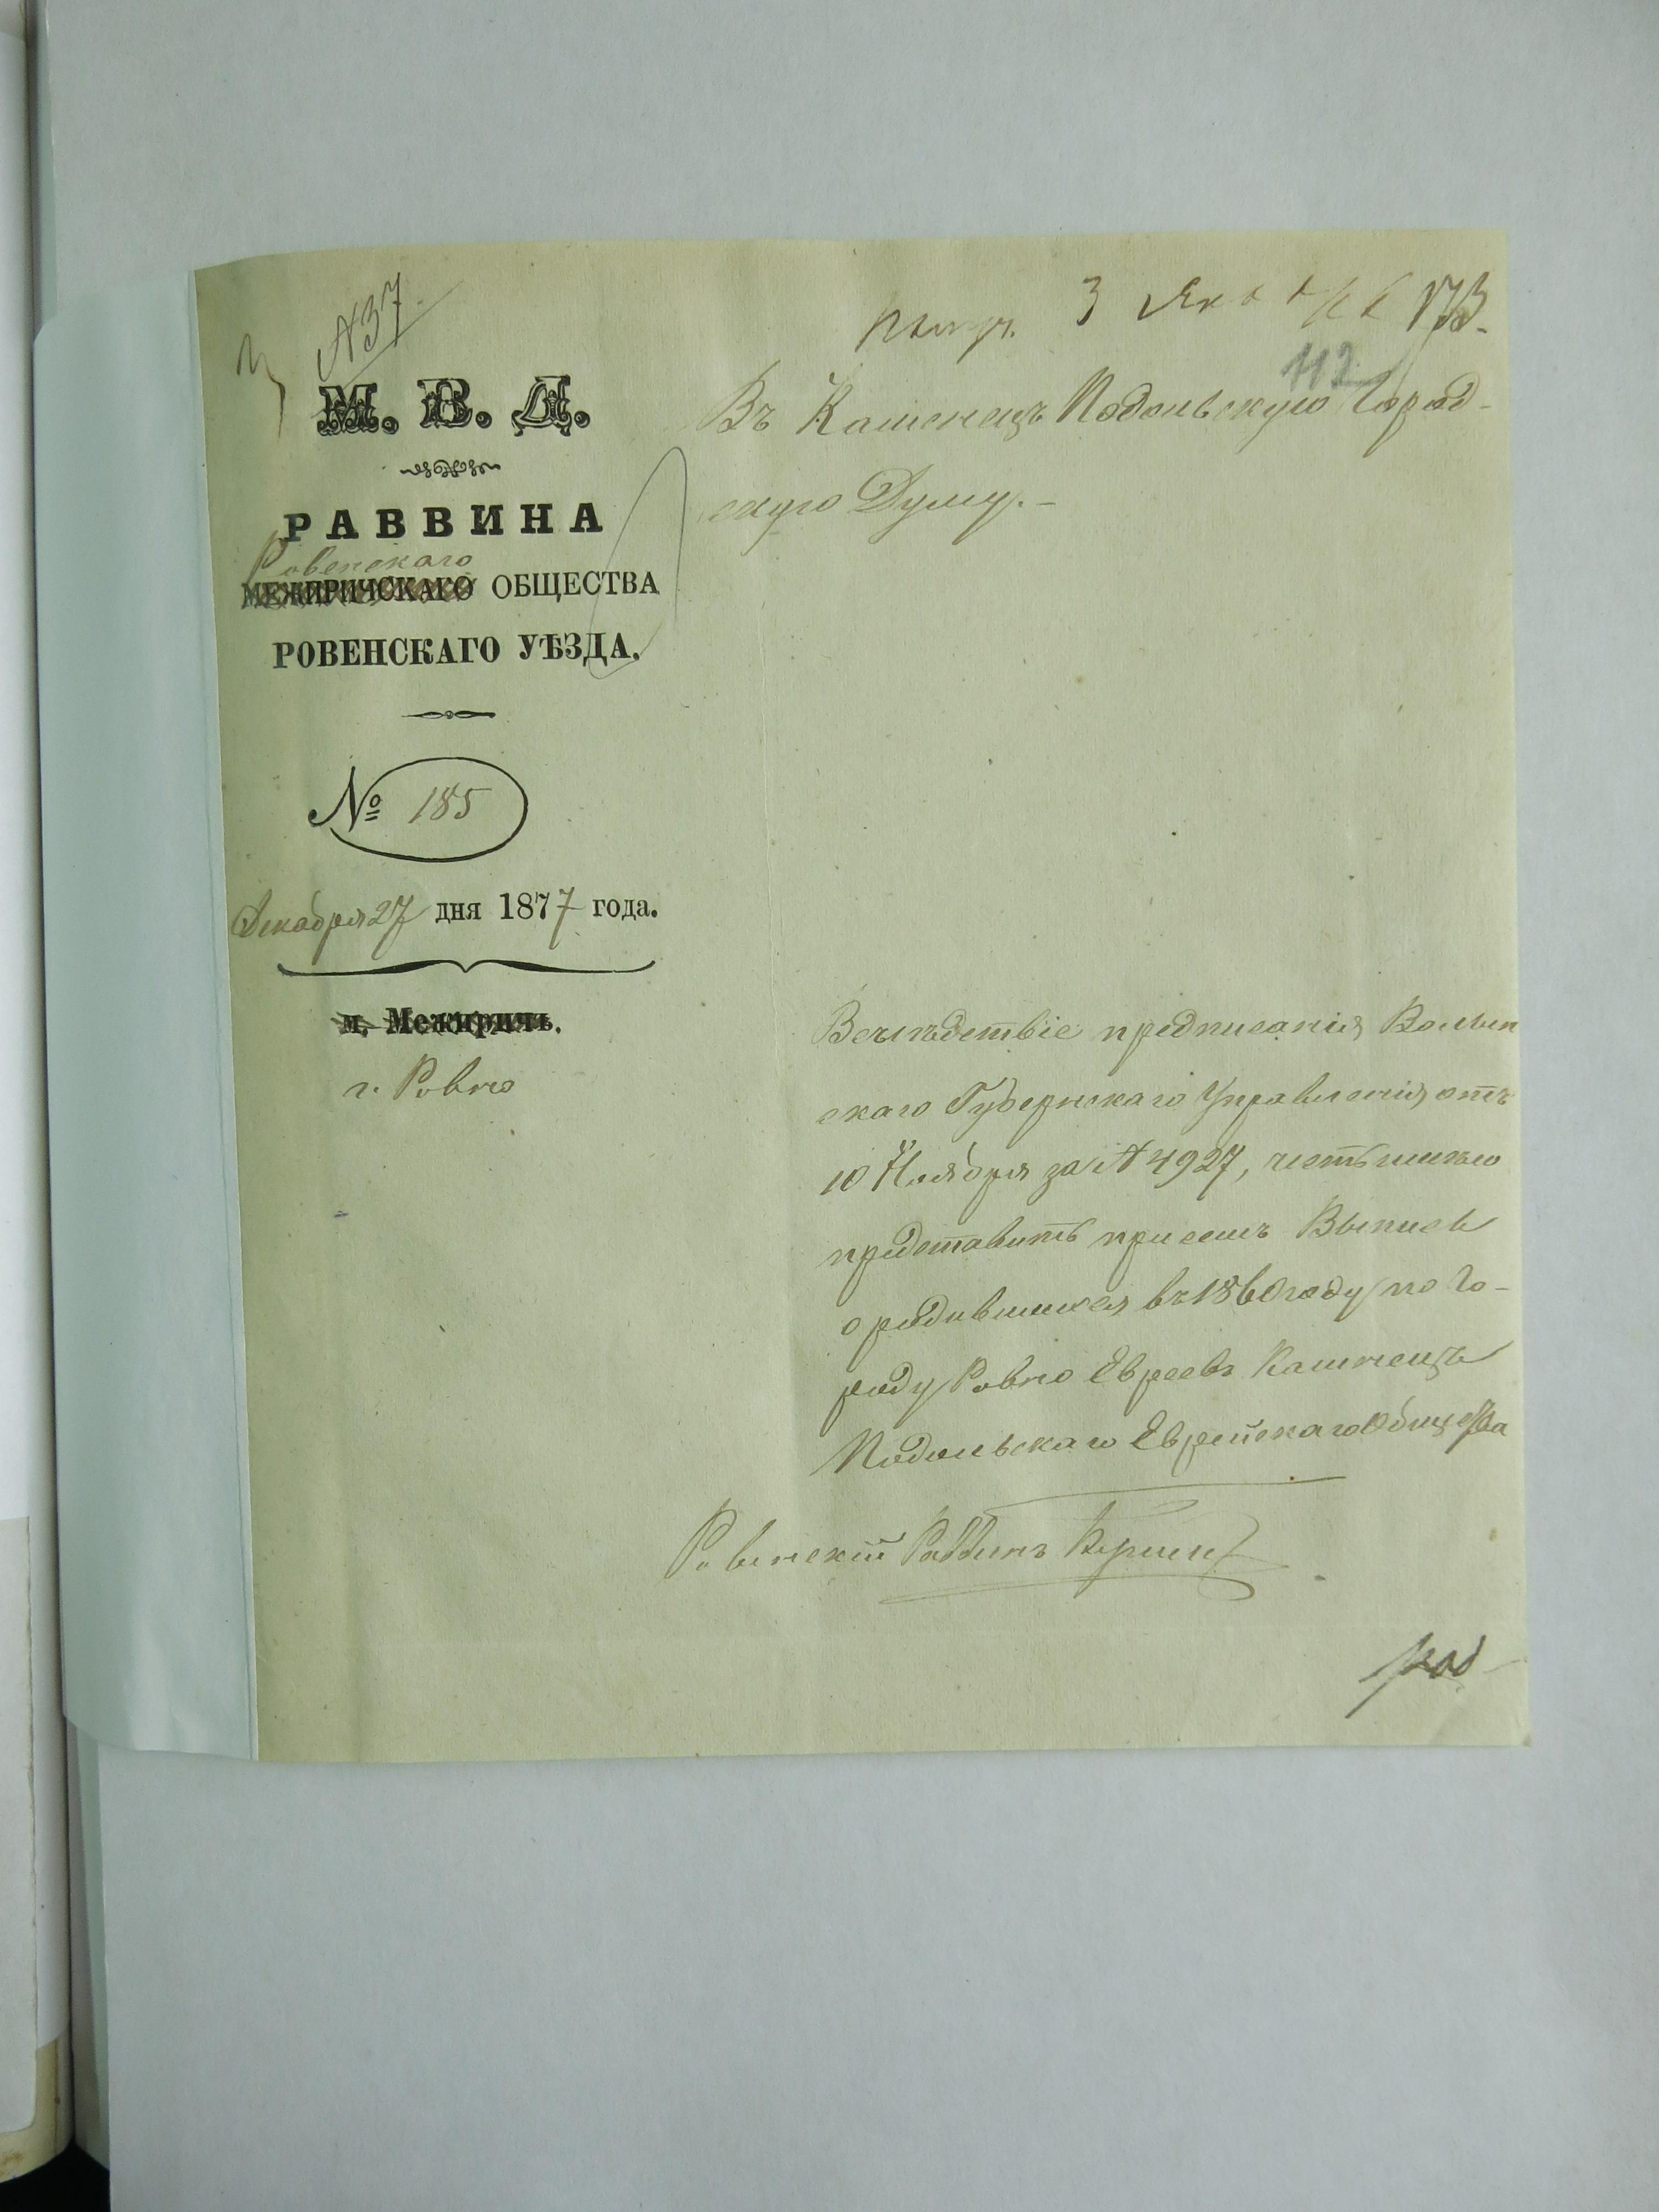 № 37
3 Янв
112
М. В. Д.
РАВВИНА
Ровенскаго
МЕЖИРИЧСКАГО ОБЩЕСТВА
РОВЕНСКАГО УѢЗДА.
№ 185
Декабря 27 дня 1877 года.
м. Межиричъ.
г. Ровно
Въ Каменецъ Подольскую Город-
скую Думу.-
Вслѣдствіе предписанія Волын
скаго Губернскаго Управленія отъ
10 Ноября за № 4927, честь имѣю
представить при семъ Выпись
о родившихся въ 1860 году по Го-
роду Ровно Евреевъ Каменецъ
Подольскаго Еврейскаго Общества
Ровенскій Раввинъ